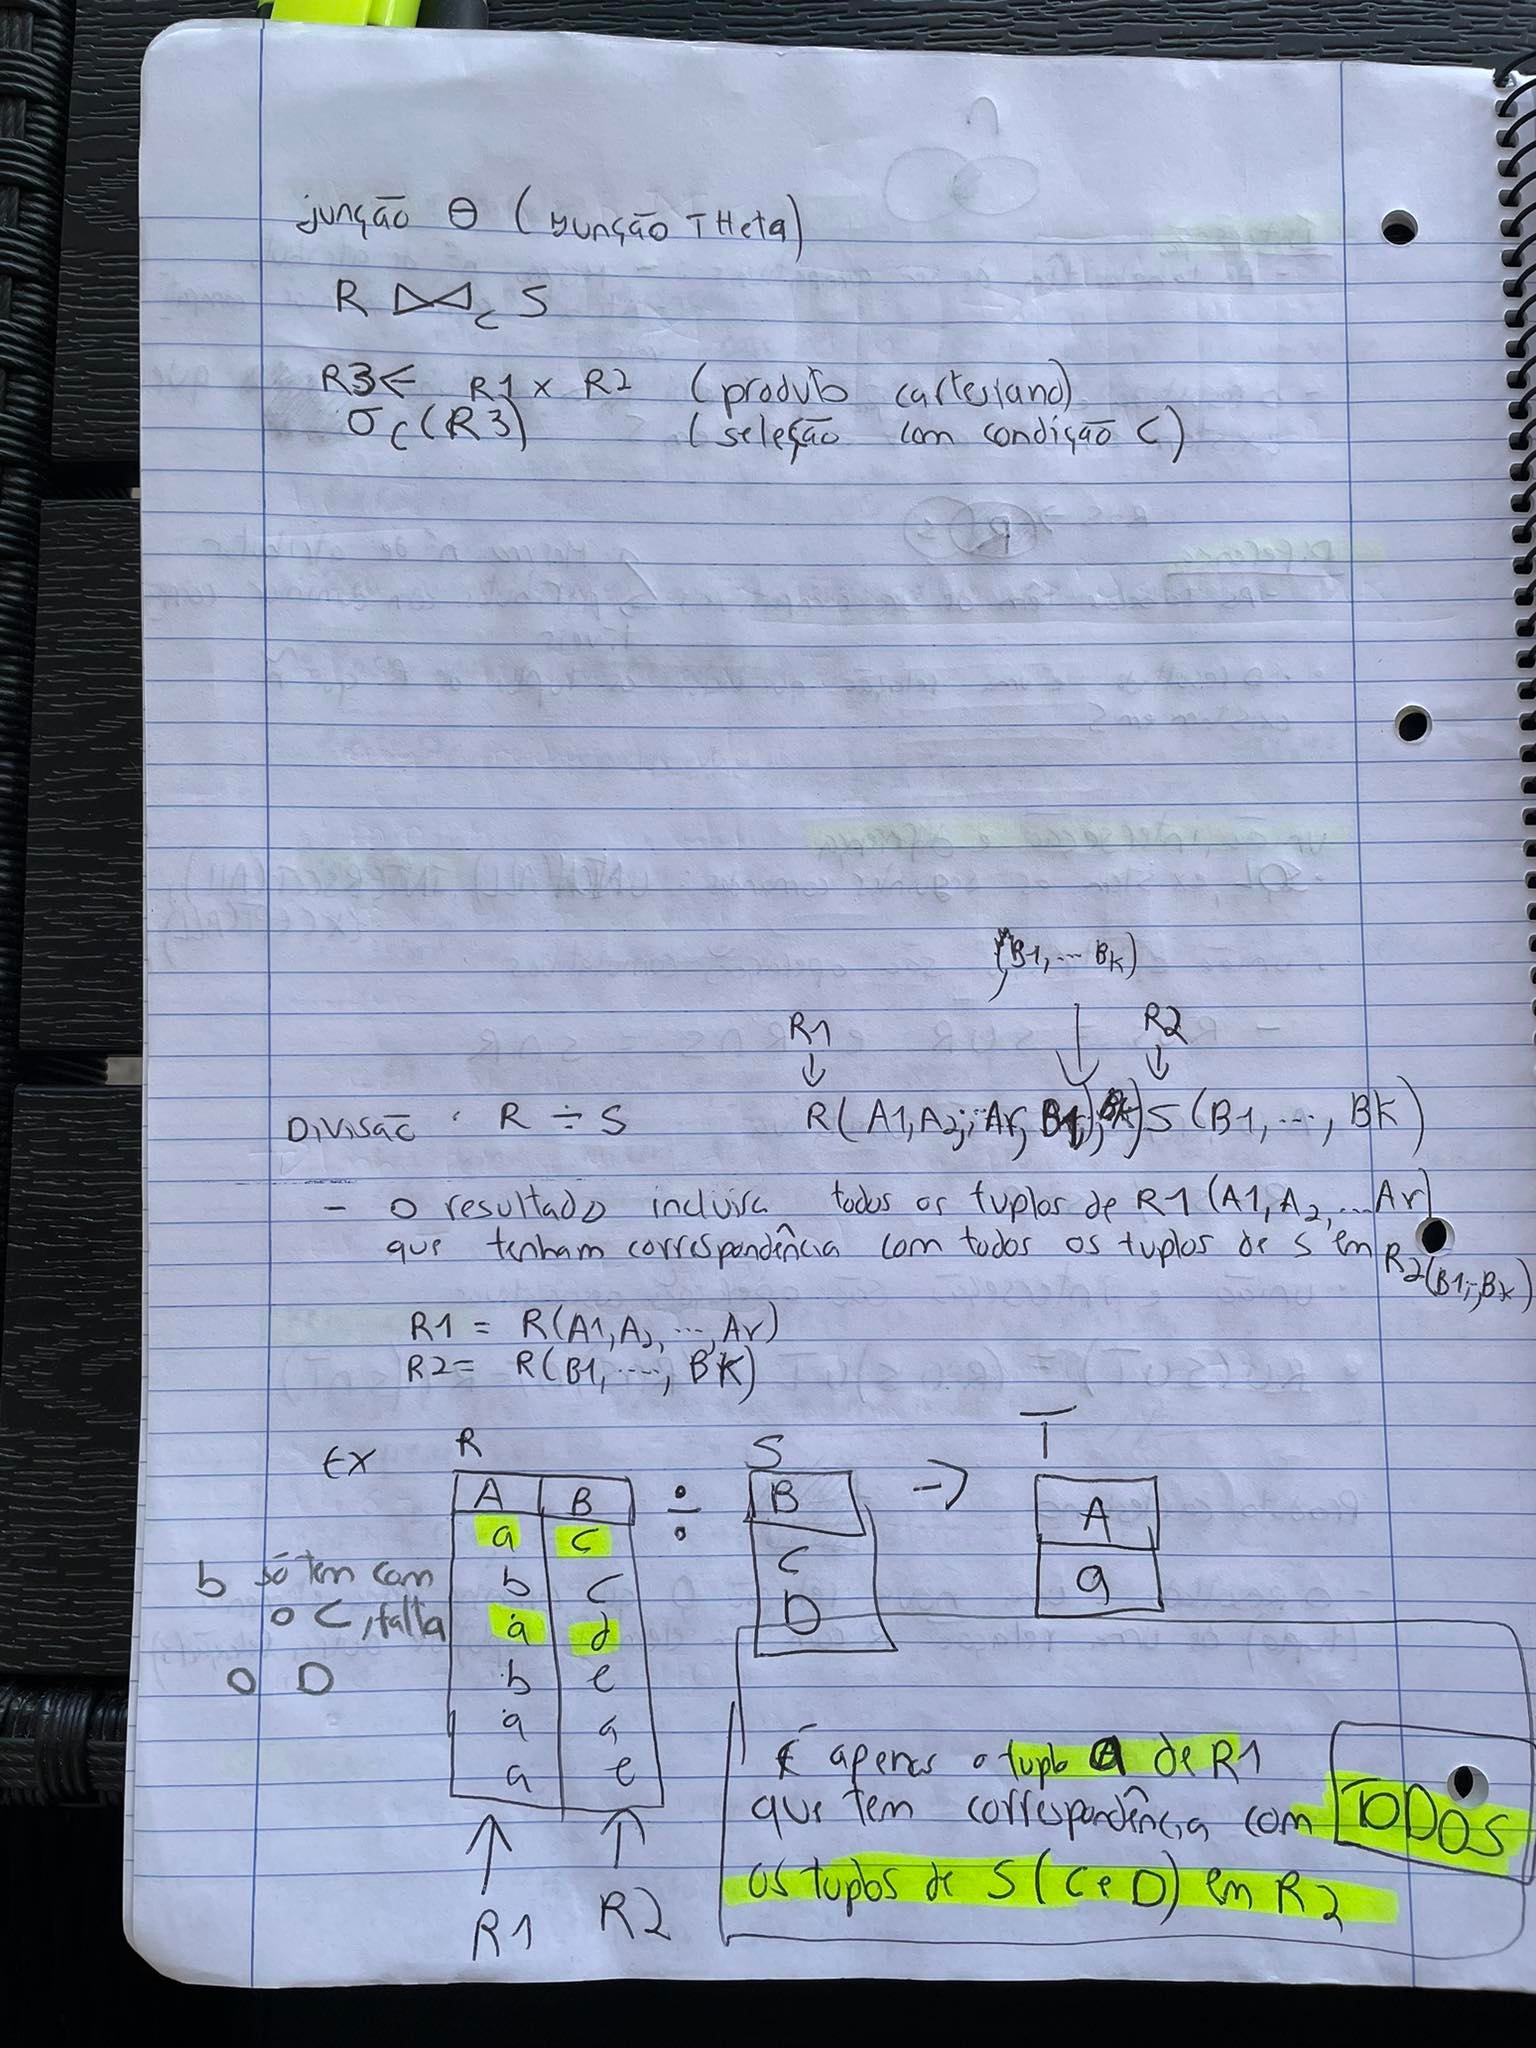 junção θ (junção THeta)
R ⋈c S
R3 ← R1 x R2 (produto cartesiano)
σc(R3) (seleção com condição C)
(B1, ... Bk)
R1 R2
Divisão R ÷ S R(A1, A2,.., Ar, B1,.., Bk) S(B1, ..., BK)
- O resultado incluirá todos os tuplos de R1 (A1, A2, ... Ar)
que tenham correspondência com todos os tuplos de S em R2(B1,..,Bk)
R1 = R(A1, A2, ..., Ar)
R2 = R(B1, ..., BK)
Ex R S T
A B ÷ B -> A
a c C a
b c D
a d
b e
a a
a e
b só tem com
o C, falta
o D
R1 R2
É apenas o tuplo a de R1
que tem correspondência com TODOS
os tuplos de S (C e D) em R2